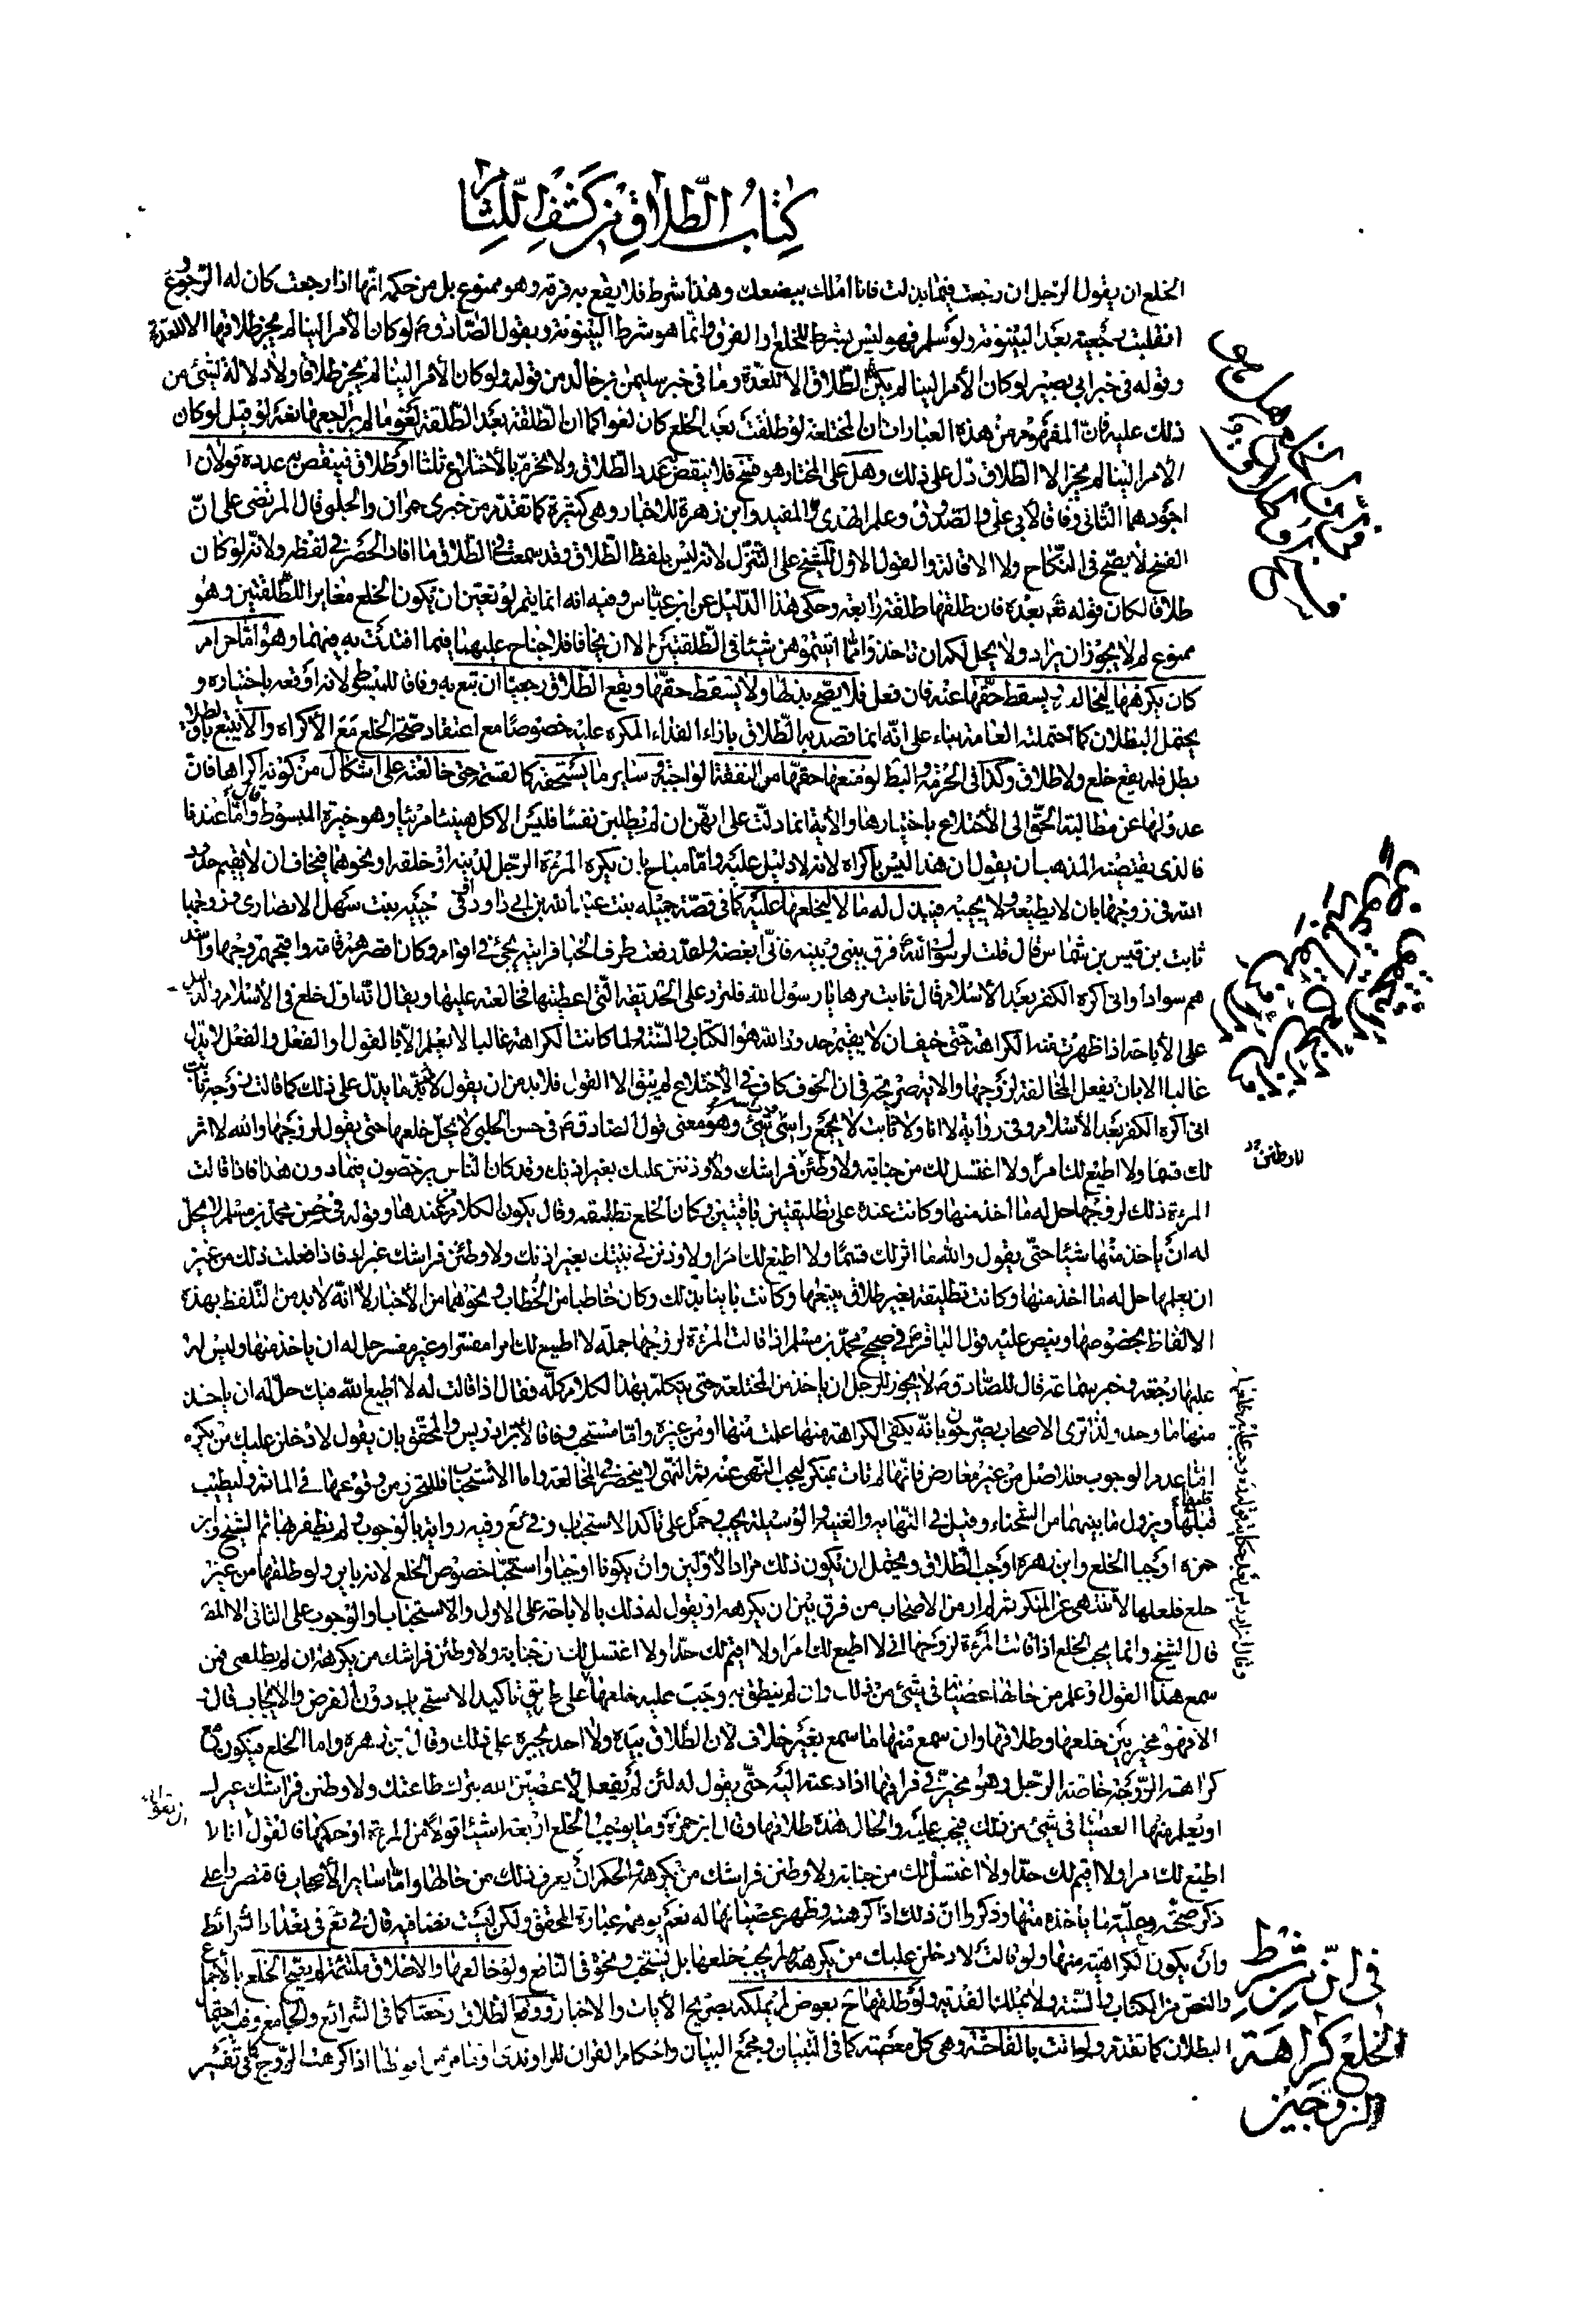 كتاب الطلاق من كشف اللثام
الخلع ان يقول الرجل ان رجعت فيما بذلت فانا املك ببضعك وهذا شرط فلا يقع به فرقه وهو ممنوع بل من حكمه انها اذا رجعت كان له الرجوع
انقلبت رجعيه بعد البينونة ولو سلم فهو ليس بشرط للخلع والفرق وانما هو شرط البينونة وبقول الصادق ع لو كان الأمر الينا لم يجز طلاقها الا للعدة
وبقوله في خبر ابي بصير لو كان الأمر الينا لم يكن الطلاق الا للعدة وما في خبر سليمن بن خالد من قوله ولو كان الأمر الينا لم يجز طلاقا ولا دلالة لشئ من
ذلك عليه فان المفهوم من هذه العبارات ان المختلعة لو طلقت بعد الخلع كان لغوا كما ان الطلقة بعد الطلقة لغو ما لم يراجعها نعم لو قيل لو كان
الأمر الينا لم يجز الا الطلاق دل على ذلك وهل على المختار هو فسخ فلا ينقص عدد الطلاق ولا تحرم بالاختلاع ثلثا او طلاق فينقص به عدده قولان
اجودهما الثاني وفاقا لأبي علي والصدوق وعلم الهدى والمفيد وابن زهرة للاخبار وهي كثيرة كما تقدم من خبري حمران والحلبي قال المرتضى على ان
الفسخ لا يصح في النكاح ولا الاقالة والقول الاول للشيخ على التنزل لانه ليس بلفظ الطلاق وقد سمعت في الطلاق ما افاد الحصر في لفظه ولانه لو كان
طلاقا لكان قوله تعم بعده فان طلقها طلقة رابعة وحكى هذا الدليل عن ابن عباس وفيه انه انما يتم لو تعين ان يكون الخلع مغايرا للطلقتين وهو
ممنوع لم لا يجوز ان يراد ولا يحل لكم ان تاخذوا مما اتيتموهن شيئا في الطلقتين الا ان يخافا فلا جناح عليهما فيما افتدت به منهما وهو اما حرام
كان يكرهها ليخالعه ويسقط حقها عنه فان فعل فلا يصح بذلها ولا يسقط حقها ويقع الطلاق رجعيا ان تبع به وفاقا للمبسوط لانه اوقعه باختياره و
يحتمل البطلان كما احتملته العامة بناء على انه انما قصد به الطلاق بازاء الفداء المكره عليه خصوصا مع اعتقاد صحة الخلع مع الاكراه والا يتبع بالطلاق
بطل فلم يقع خلع ولا طلاق وكذا في الحرمة والبطلان لو منعها حقها من النفقة الواجبة وساير ما يستحقه كالقسمة حتى خالعته على اشكال من كونه اكراها فان
عدولها عن مطالبة الحق الى الاختلاع باختيارها والآية انما دلت على انهن ان لم يطلبن نفسا فليس الاكل هنيئا مريئا وهو خيرة المبسوط واما عندنا
فالذي يقتضيه المذهب ان يقول ان هذا ليس باكراه لانه لا دليل عليه واما مباح بان يكره المرءة الرجل لدينه او خلقه او نحوهما فيخاف ان لا يقيم حدود
الله في زوجها بان لا يطيعه ولا يجيبه فيبذل له مالا ليخلعها عليه كما في قصة جميله بنت عبد الله بن ابي داود في حبيبه بنت سهل الانصاري وزوجها
ثابت بن قيس بن شماس قال قلت لرسول الله فرق بيني وبينه فاني ابغضه ولقد رفعت طرف الخبا فرايته يجئ في اقوام وكان اقصرهم قامة واقبحهم وجها واشد
هم سوادا واني اكره الكفر بعد الاسلام قال ثابت مرها يا رسول الله فلترد على الحديقة التي اعطيتها فخالعته عليها ويقال انه اول خلع في الاسلام
على الأباحة اذا ظهرت منه الكراهة حتى خيف ان لا يقيم حدود الله هو الكتاب والسنة ولما كانت الكراهة غالبا لا تعلم الا بالقول او الفعل والفعل لا يدل
غالبا الا بان يفعل المخالفة لزوجها والاية صريحة في ان الخوف كاف في الاختلاع لم يبق الا القول فلا بد من ان يقول ما يدل على ذلك كما قالت زوجة ثابت
اني اكره الكفر بعد الأسلام وفي رواية لا انا ولا ثابت لا يجمع راسي شئ وهو معنى قول الصادق ع في حسن الحلبي لا يحل خلعها حتى يقول لزوجها والله لا ابر
لك قسما ولا اطيع لك امرا ولا اغتسل لك من جنابة ولا وطئن فراشك ولاوذنن عليك بغير اذنك وقد كان الناس يرخصون فيما دون هذا فاذا قالت
المرءة ذلك لزوجها حل له ما اخذ منها وكانت عنده على تطليقتين باقيتين وكان الخلع تطليقه وقال يكون الكلام من عندها وقوله في حسن محمد بن مسلم لا يحل
له ان يأخذ منها شيئا حتى يقول والله ما ابر لك قسما ولا اطيع لك امرا ولاوذنن في بيتك بغير اذنك ولا وطئن فراشك غيرك فاذا فعلت ذلك من غير
ان يعلمها حل له ما اخذ منها وكانت تطليقة بغير طلاق يتبعها وكانت باينا بذلك وكان خاطبا من الخطاب ونحوهما من الأخبار لا انه لا بد من التلفظ بهذه
الالفاظ بخصوصها وينص عليه قول الباقر ع في صحيح محمد بن مسلم اذا قالت المرءة لزوجها جملة لا اطيع لك امرا مفسرا وغير مفسر حل له ان ياخذ منها وليس له
عليها رجعة وخبر سماعة قال للصادق ع لا يجوز للرجل ان ياخذ من المختلعة حتى يتكلم بهذا الكلام كله فقال اذا قالت له لا اطيع الله فيك حل له ان ياخذ
منها ما وجد ولذا ترى الاصحاب يصرحون بانه يكفي الكراهة منها علمت منها او من غيره واما مستحب وفاقا لابن ادريس والمحقق بان يقول لادخلن عليك من تكرهه
اما عدم الوجوب فللاصل من غير معارض فانها لم تات بمنكر ليجب النهي عنه ثم النهي لا ينحصر في المخالعة واما الاستحباب فللتحرز من وقوعها في الماثم وليطيب
قلبها ويزول ما بينهما من الشحناء وقيل في النهايه والغنيه والوسيلة يجب وحمل على تاكد الاستحباب وفي يع وفيه رواية بالوجوب ولم نظفر بها ثم الشيخ وابن
حمزه اوجبا الخلع وابن زهره اوجب الطلاق ويحتمل ان يكون ذلك مراد الأولين وان يكونا اوجبا او استحبا خصوص الخلع لانه باين ولو طلقها من غير
خلع فلعلها لا تنتهي عن المنكر ثم لم ار من الاصحاب من فرق بين ان يكرهه او يقول له ذلك بالاباحة على الاول والاستحباب او الوجوب على الثاني الا المصـ
قال الشيخ وانما يجب الخلع اذا قالت المرءة لزوجها اني لا اطيع لك امرا ولا اقيم لك حدا ولا اغتسل لك من جنابة ولا وطئن فراشك من يكرهه ان لم يطلقني فمن
سمع هذا القول او علم من حالها عصيانا في شئ من ذلك وان لم ينطق به وجب عليه خلعها على طريق تاكيد الاستحباب دون الفرض والايجاب قال
الا فهو مخير بين خلعها وطلاقها وان سمع منها ما سمع بغير خلاف لان الطلاق بيده ولا احد يجبره على ذلك وقال ابن زهرة واما الخلع فيكون مع
كراهة الزوجة خاصة الرجل وهو مخير في فراقها اذا دعته اليه حتى يقول له لئن لم يفعل لأعصين الله بترك طاعتك ولا وطئن فراشك غيرك
او يعلم منها العصيان في شئ من ذلك فيجب عليه والحال هذه طلاقها وقال ابن حمزة وما يوجب الخلع اربعة اشيا قولا من المرءة او حكما فالقول انا لا
اطيع لك امرا ولا اقيم لك حدا ولا اغتسل لك من جنابة ولا وطئن فراشك من يكرهه والحكم ان يعرف ذلك من حالها واما ساير الأصحاب فاقتصروا على
ذكر صحته وحلية ما يأخذه منها وذكروا ان ذلك اذا كرهته وظهر عصيانها له نعم يوهمه عبارة المحقق ولكن ليست نصا فيه قال في يع في تعداد الشرائط
وان يكون الكراهية منها ولو قالت لادخلن عليك من يكرهه لم يجب خلعها بل يستحب ونحوه في النافع ولو خالعها والاخلاق ملتئمة لم يصح الخلع بالأجماع
والنص من الكتاب والسنة ولا يملك الفدية ولو طلقها ح بعوض لم يملكه بصريح الآيات والاخبار ووقع الطلاق رجعيا كما في الشرائع والجامع وفيه احتمال
البطلان كما تقدم ولو اتت بالفاحشة وهي كل معصية كما في التبيان ومجمع البيان واحكام القران للراوندي
فى ان شرط
الخلع كراهة
الزوجين
لاوطئن